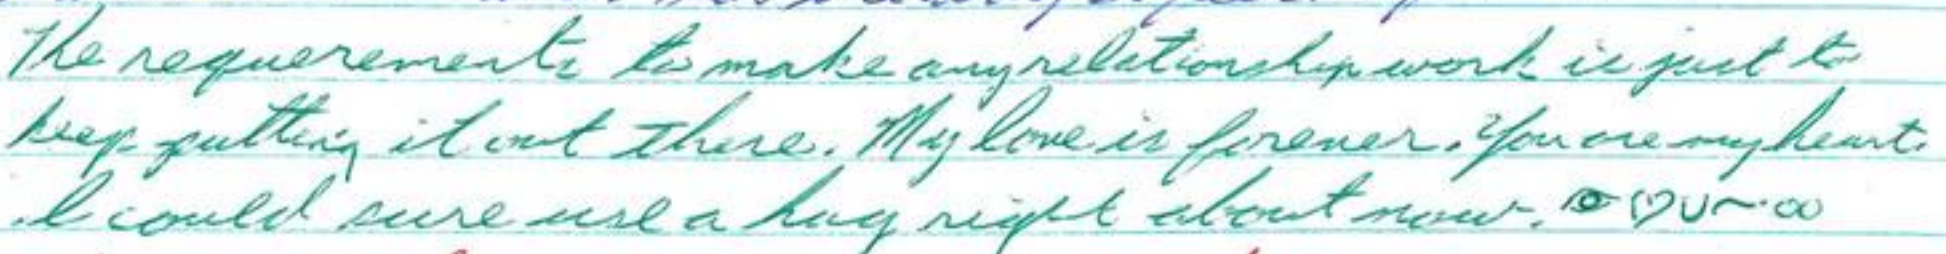 The requerements to make any relationship work is just to
keep putting it out there. My love is forever. You are my heart.
I could sure use a hug right about now. 👁♡U~∞